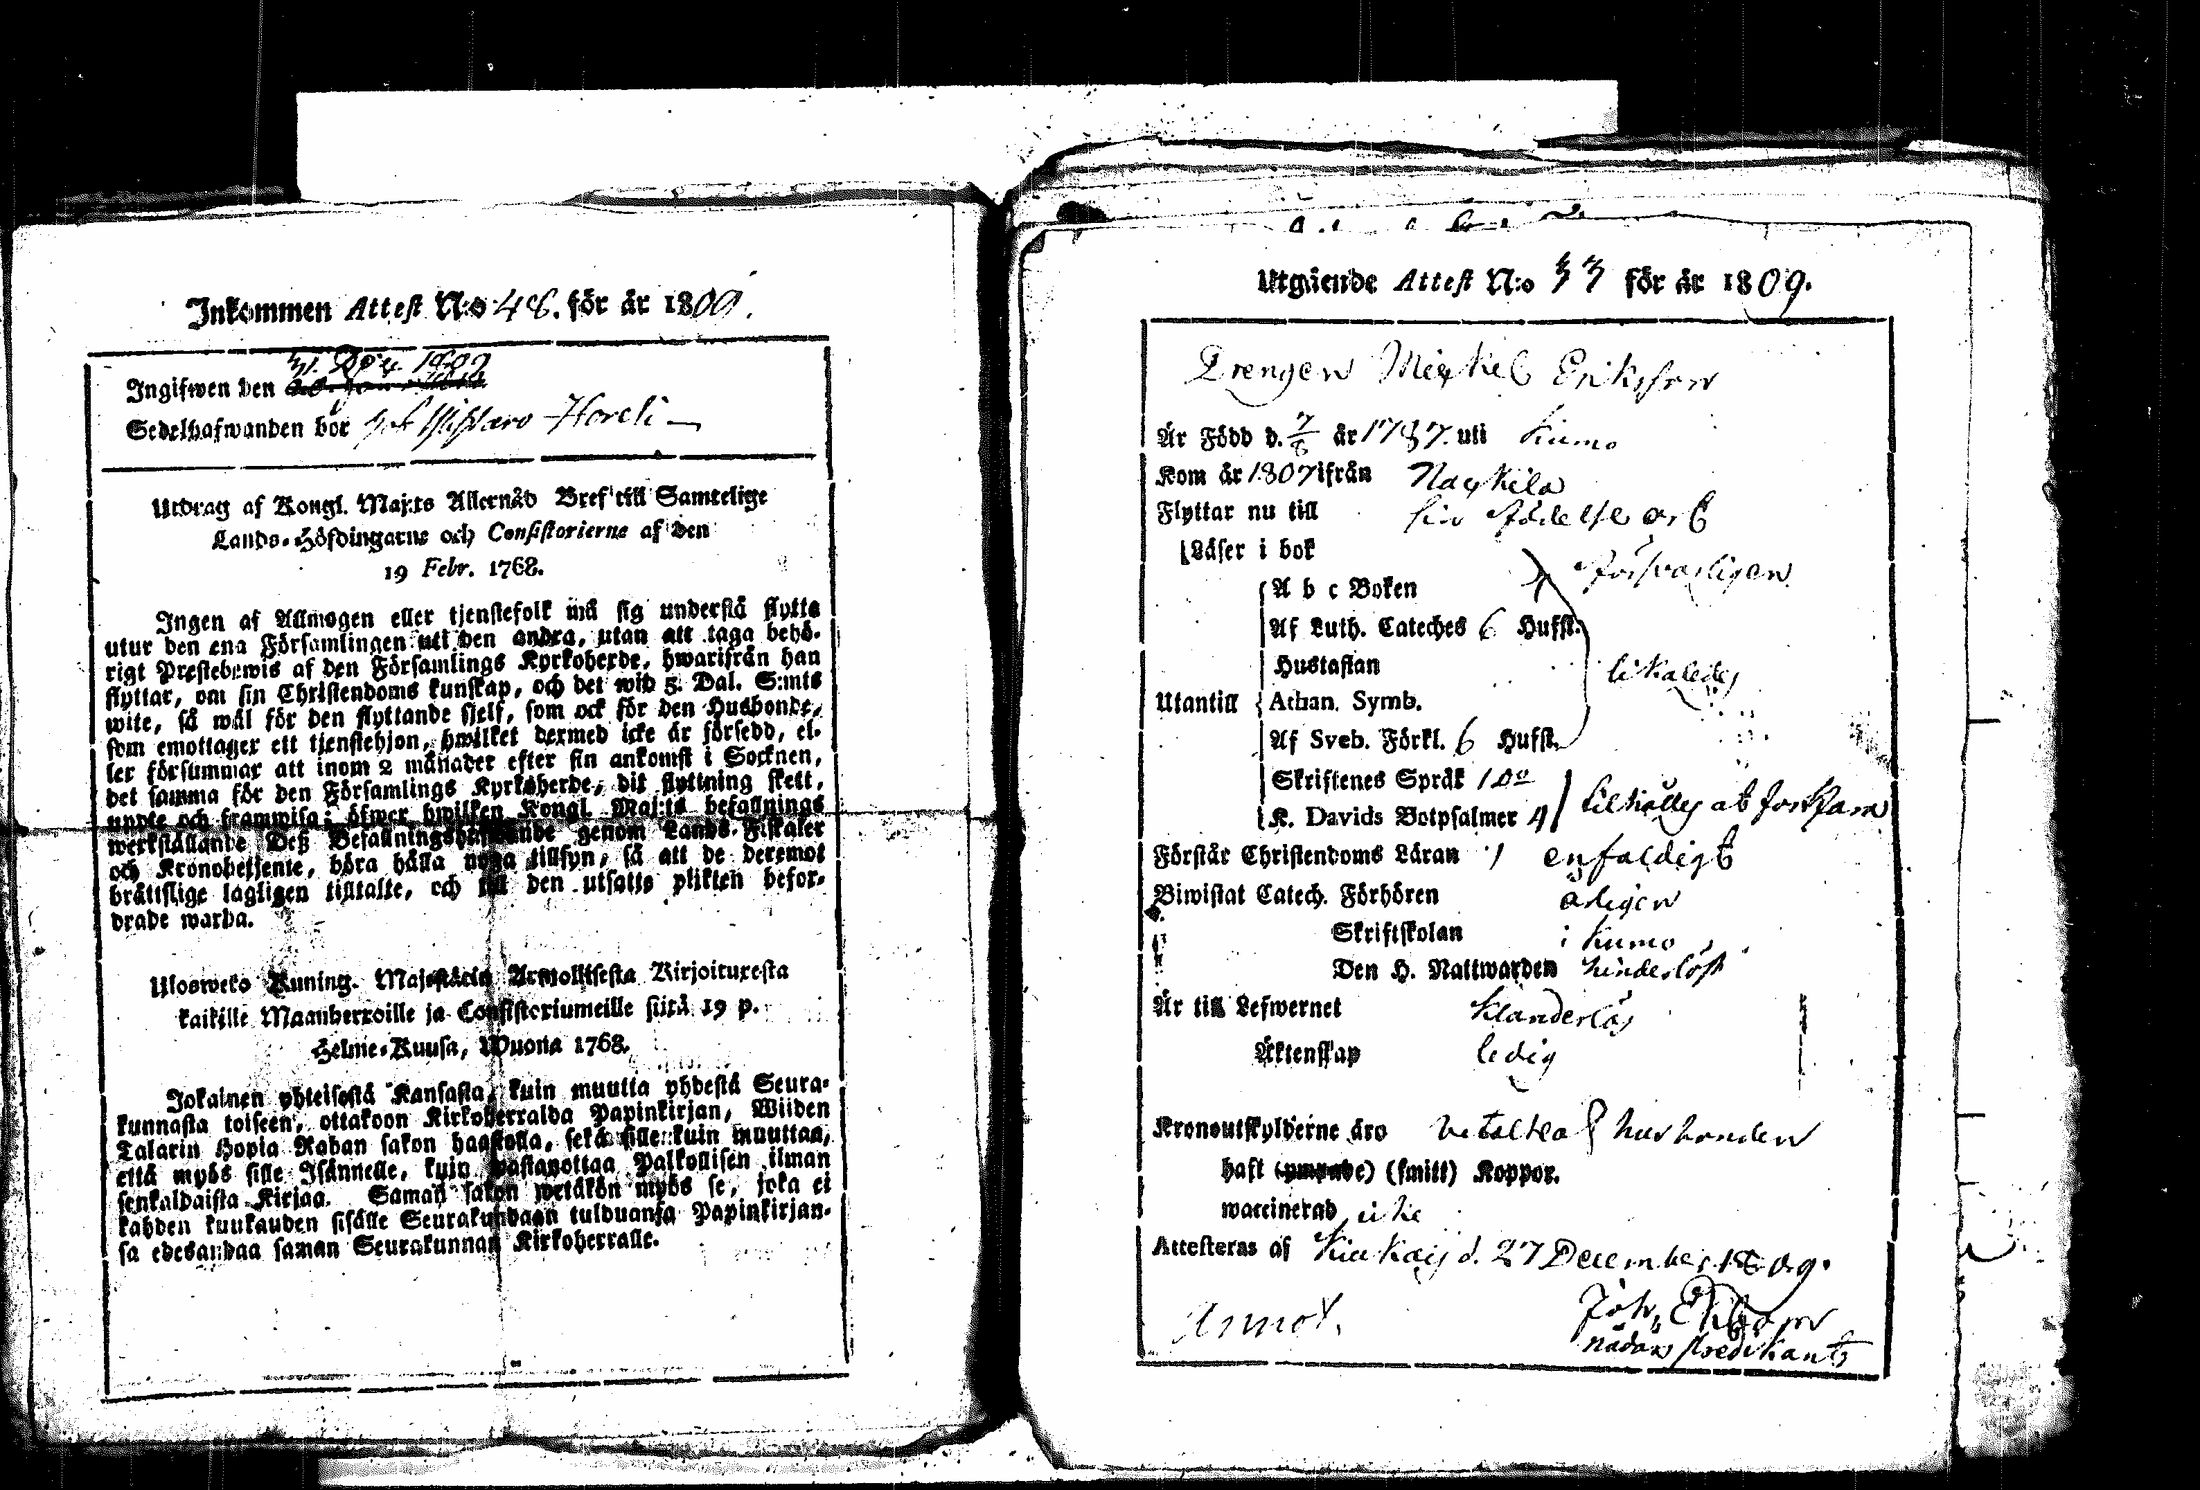 Inkommen Attest N:o 48. för år 1809.
31. Dec. 1809
Ingifwen den
Sedelhafwanden bor
Utdrag af Kongl. Maj:ts Allernåd Bref till Samtelige
Lands-Höfdingarne och Consistorierne af den
19 Febr. 1768.
Ingen af Allmogen eller tjenstefolk må sig understå flytta
utur den ena Församlingen uti den andra, utan att taga behö-
rigt Prestebewis af den Församlings Kyrkoherde, hwarifrån han
flyttar, om sin Christendoms kunskap, och det wid 5. Dal. S:mts
wite, så wäl för den flyttande sjelf, som ock för den Husbonde,
som emottager ett tjenstehjon, hwilket dermed icke är försedd, el-
ler försummar att inom 2 månader efter sin ankomst i Socknen,
det samma för den Församlings Kyrkoherde, dit flyttning skett,
upte och framwisa; öfwer hwilken Kongl. Maj:ts befallnings
werkställande Deß Befallningshafwande genom Lands-Fiskaler
och Kronobetjente, böra hålla noga tillsyn, så att de deremot
bråttslige lagligen tilltalte, och till den utsatte plikten befor-
drade warda.
Ulosweto Kuning. Majestätin Armollisesta Kirjoituxesta
kaikille Maanherroille ja Consistoriumeille siitä 19 p.
Helme-Kuusa, Wuona 1768.
Jokainen yhteisestä Kansasta, kuin muutta yhdestä Seura-
kunnasta toiseen, ottakoon Kirkoherralda Papinkirjan, Wiiden
Talarin Hopia Rahan sakon haastolla, sekä sille kuin muuttaa,
että myös sille Isännelle, kuin wastanottaa Palkollisen ilman
senkaldaista Kirjaa. Saman sakon wetäkön myös se, joka ei
kahden kuukauden sisälle Seurakundaan tulduansa Papinkirjan-
sa edesandaa saman Seurakunnan Kirkoherralle.
Utgående Attest N:o 33 för år 1809.
Drengen Michel Eriksson
Är Född d. 7/8 år 1787. uti Kumo
Kom år 1807 ifrån Nackila
Flyttar nu till sin födelse ort
Läser i bok försvarligen
A b c Boken
Af Luth. Cateches 6 Hufst.
Hustaflan likaledes
Utantill Athan. Symb.
Af Sveb. Förkl. 6 Hufst.
Skriftenes Språk 10
K. Davids Botpsalmer 4 tilhålles at förkofra
Förstår Christendoms Läran enfaldigt
Biwistat Catech. Förhören årligen
Skriftskolan i Kumo
Den H. Nattwarden hinderlöst
Är till Lefwernet klanderlös
Äktenskap ledig
Kronoutskylderne äro betalta husbonden
haft (smitt) Koppor.
waccinerad icke
Attesteras af Kiukais d. 27 December 1809.
Joh. Ekbom
nådårs predikant
Annot.